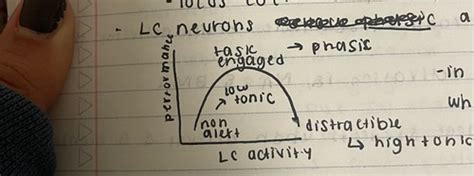 - LC neurons C a
task engaged → phasic
performance
low tonic
-in
wh
non alert
distractible
LC activity
↳ high tonic